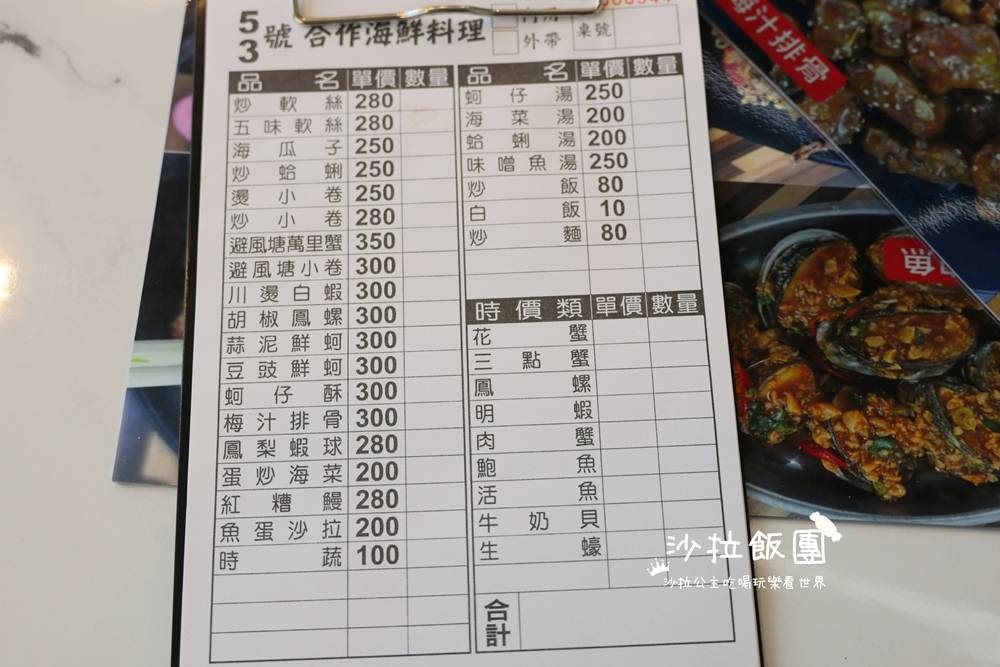 53號 合作海鮮料理
外帶 桌號
品名 單價 數量
炒軟絲 280
五味軟絲 280
海瓜子 250
炒蛤蜊 250
燙小卷 250
炒小卷 280
避風塘萬里蟹 350
避風塘小卷 300
川燙白蝦 300
胡椒鳳螺 300
蒜泥鮮蚵 300
豆豉鮮蚵 300
蚵仔酥 300
梅汁排骨 300
鳳梨蝦球 280
蛋炒海菜 200
紅糟鰻 280
魚蛋沙拉 200
時蔬 100
品名 單價 數量
蚵仔湯 250
海菜湯 200
蛤蜊湯 200
味噌魚湯 250
炒飯 80
白飯 10
炒麵 80
時價類 單價 數量
花蟹
三點蟹
鳳螺
明蝦
肉蟹
鮑魚
活魚
牛奶貝
生蠔
合計
梅汁排骨
魚
沙拉飯團
沙拉公主吃喝玩樂看世界